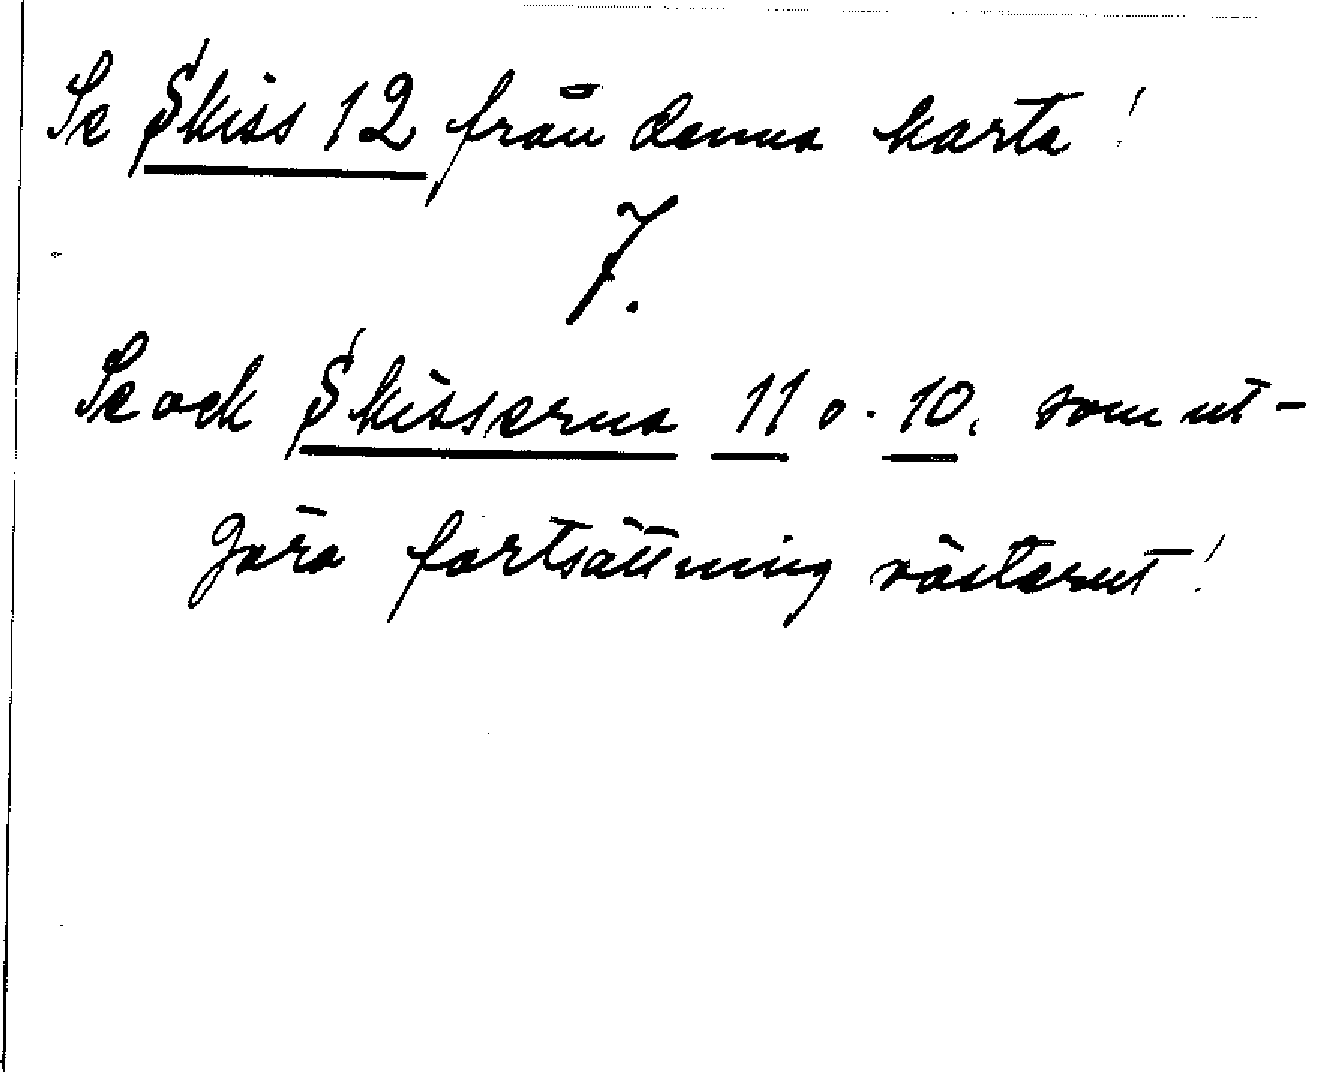 Se Skiss 12 från denna karta!
7.
Se ock Skisserna 11 o. 10. som ut-
göra fortsättning västerut!